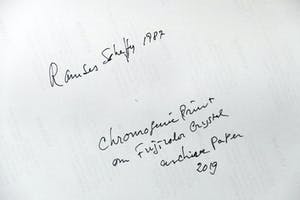 Ramses Shaffy 1987
Chromogenic Print
on Fujicolor Crystal
archive Paper
2019